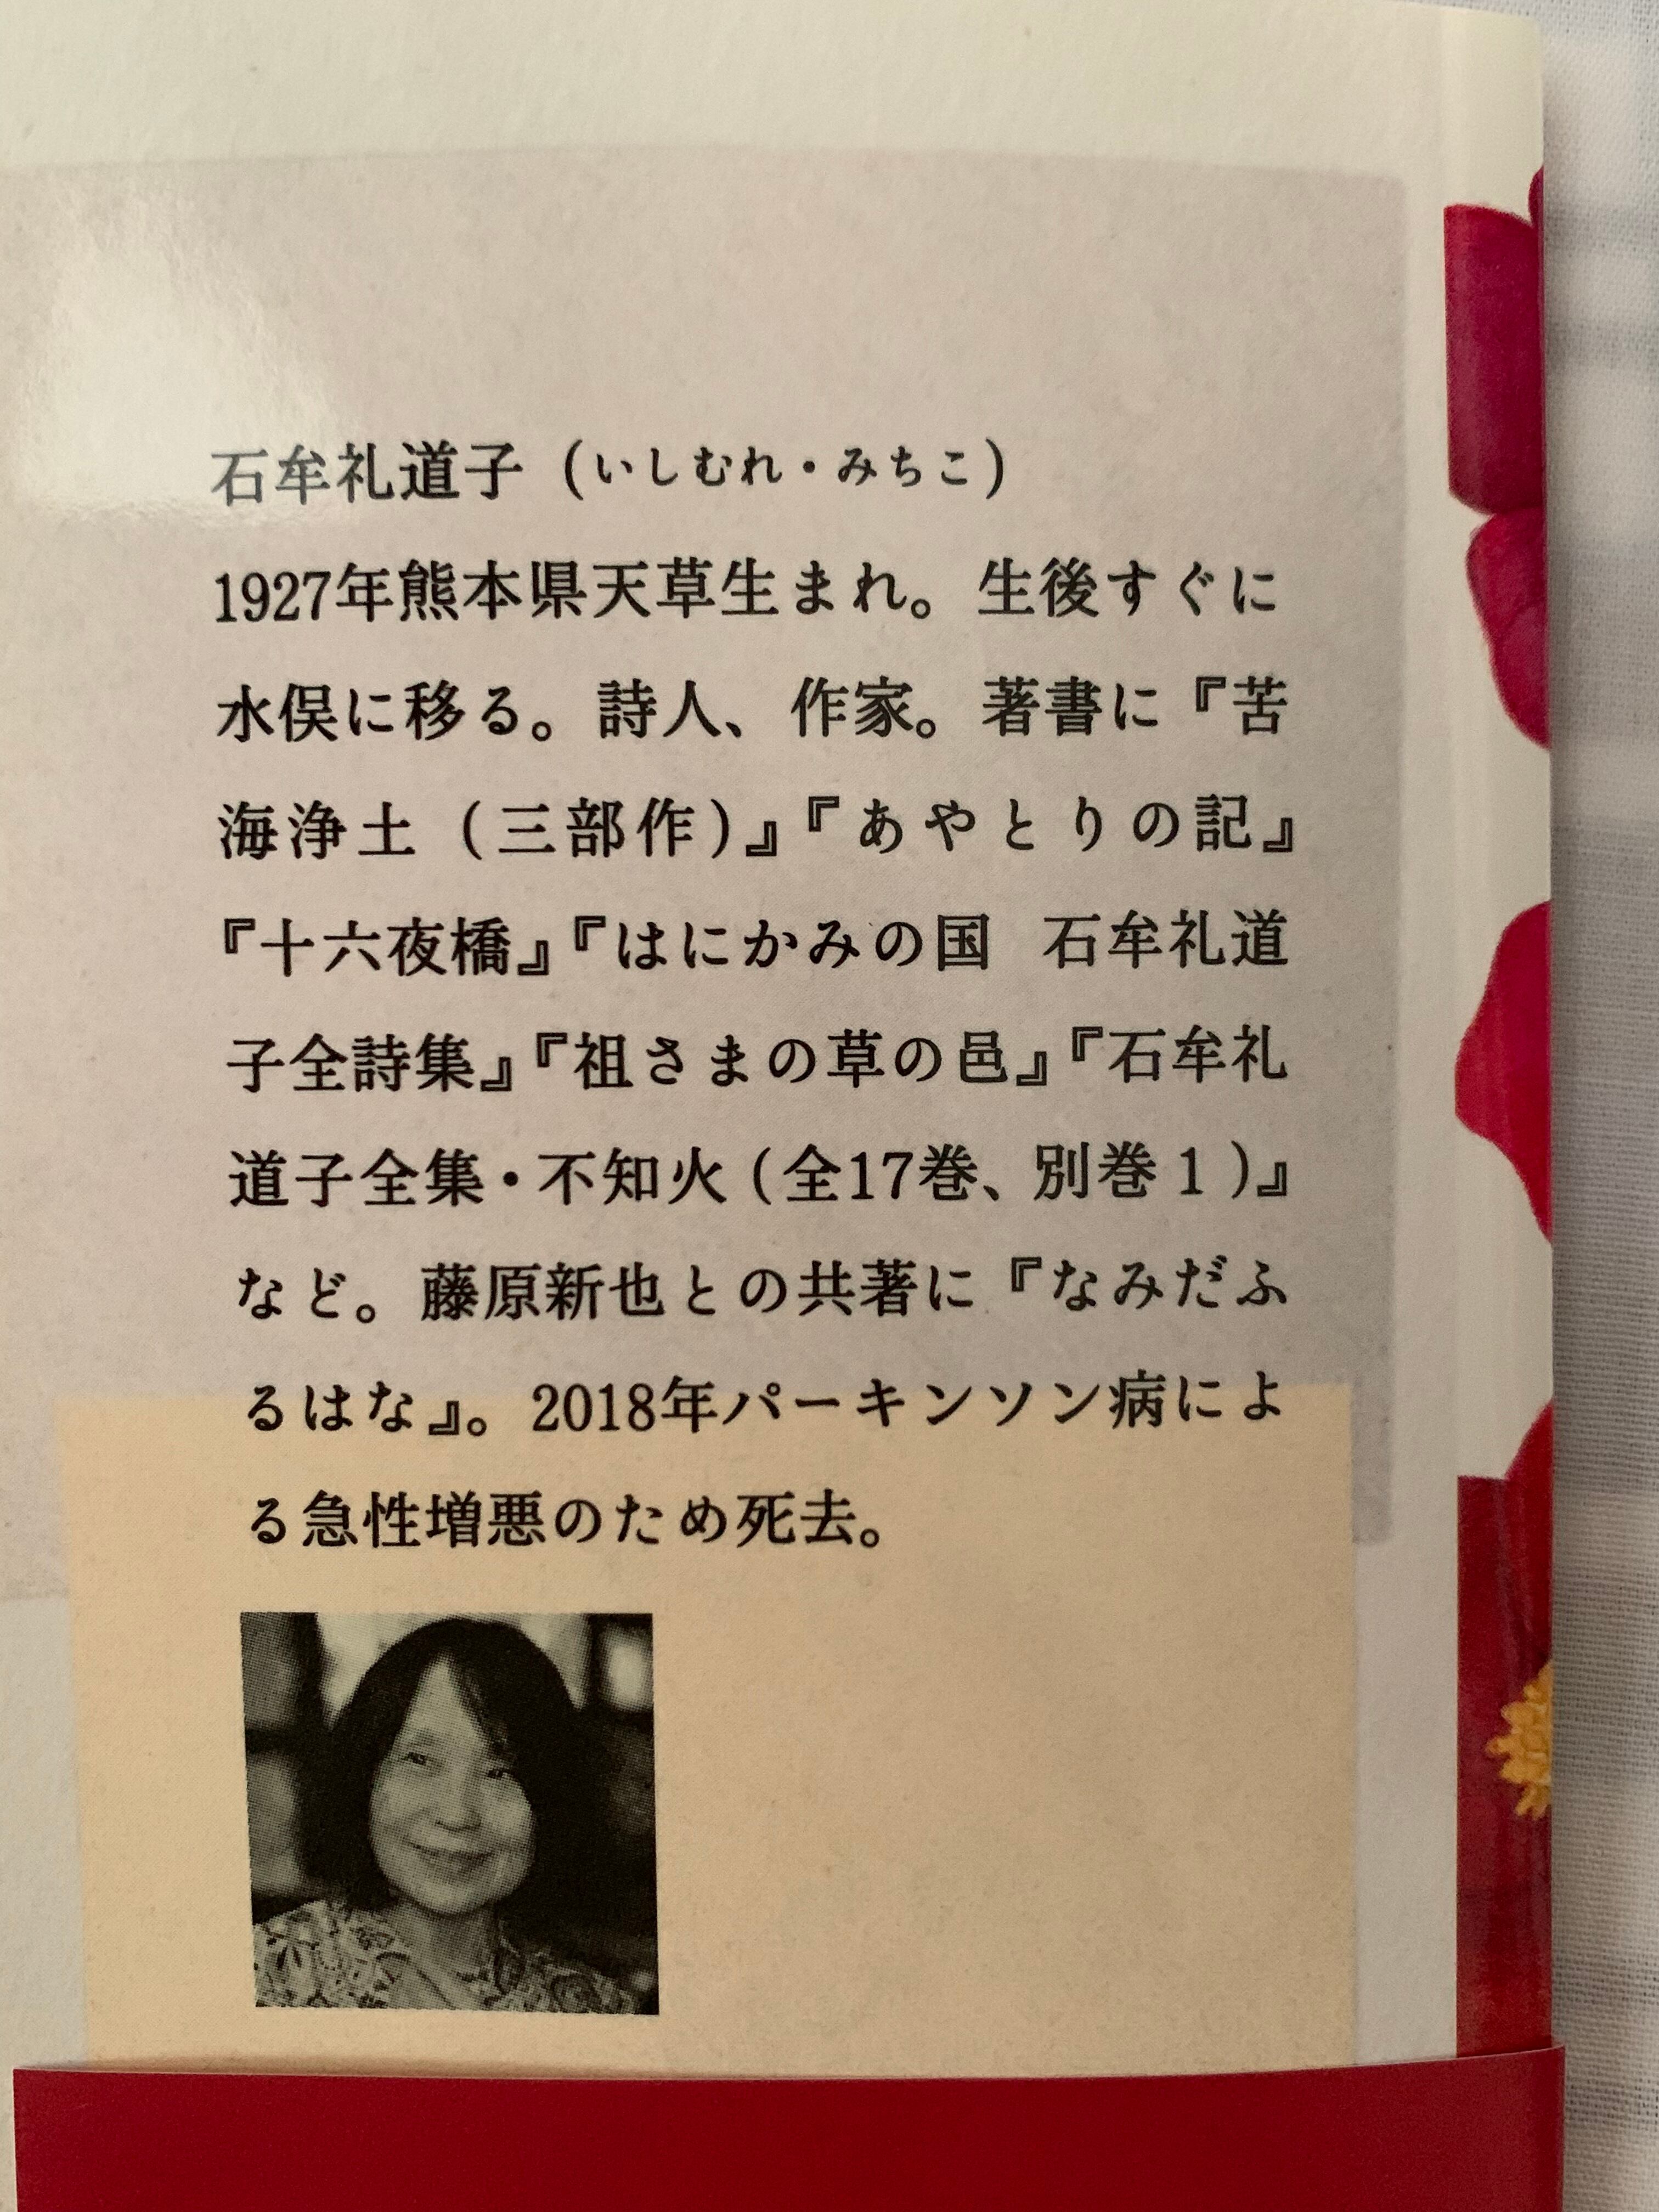 石牟礼道子（いしむれ・みちこ）
1927年熊本県天草生まれ。生後すぐに
水俣に移る。詩人、作家。著書に『苦
海浄土（三部作）』『あやとりの記』
『十六夜橋』『はにかみの国　石牟礼道
子全詩集』『祖さまの草の邑』『石牟礼
道子全集・不知火（全17巻、別巻1）』
など。藤原新也との共著に『なみだふ
るはな』。2018年パーキンソン病によ
る急性増悪のため死去。